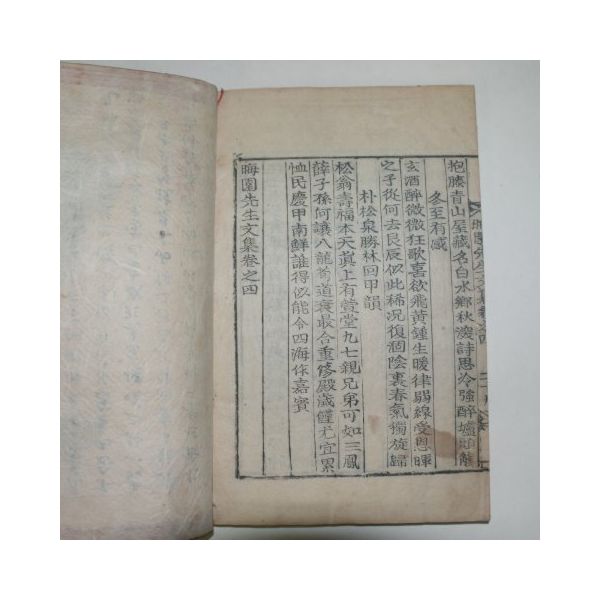 抱膝青山屋藏名白水鄉秋深詩思冷強醉墟
冬至有感
玄酒醉微微狂歌喜欲飛黃鍾生暖律弱線受恩暉
之子從何去良辰似此稀況復涸陰裏春氣獨旋歸
朴松泉勝林回甲韻
松翁壽福本天眞上有萱堂九七親兄弟可如三鳳
薛子孫何讓八龍荀道衰最合重修殿歲饉尤宜累
恤民慶甲南鮮誰得似能令四海作嘉賓
晦園先生文集卷之四